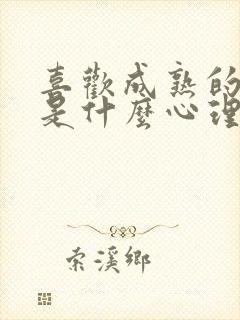 喜歡成熟的
是什麼心理
索溪鄉